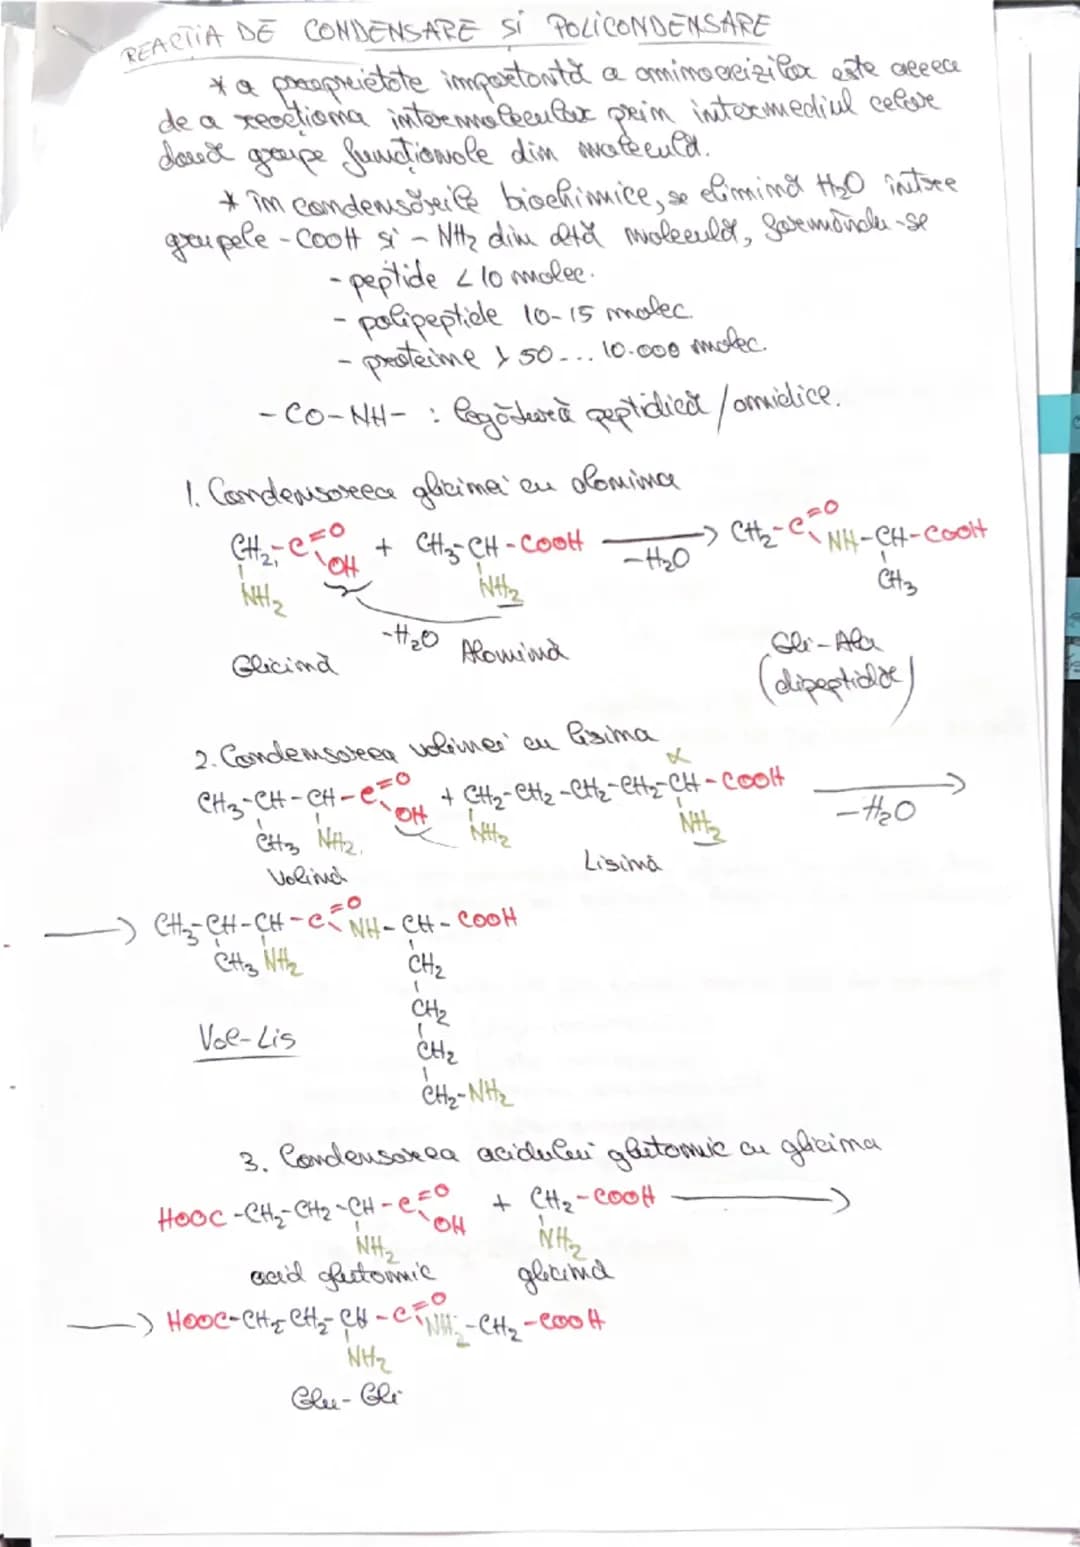 REACȚIA DE CONDENSARE SI POLICONDENSARE
* o proprietate importantă a aminoacizilor este aceea
de a reacționa intermolecular prin intermediul celor
două grupe funcționale din moleculă.
* în condensările biochimice, se elimină H₂O între
grupele -COOH si -NH₂ din altă moleculă, formându-se
- peptide < 10 molec.
- polipeptide 10-15 molec.
- proteine > 50 ... 10.000 molec.
-CO-NH- : legătură peptidică / amidice.
1. Condensarea glicinei cu alanina
CH₂-C=O + CH₃-CH-COOH → CH₂-C=O
OH -H₂O NH-CH-COOH
NH₂ NH₂ CH₃
-H₂O
Glicină Alanină Gli-Ala
(dipeptidă)
2. Condensarea valinei cu lisina
α
CH₃-CH-CH-C=O + CH₂-CH₂-CH₂-CH₂-CH-COOH →
OH -H₂O
CH₃ NH₂ NH₂ NH₂
Valină Lisină
→ CH₃-CH-CH-C=O
NH-CH-COOH
CH₃ NH₂ CH₂
CH₂
Val-Lis CH₂
CH₂-NH₂
3. Condensarea acidului glutamic cu glicina
HOOC-CH₂-CH₂-CH-C=O + CH₂-COOH →
OH
NH₂ NH₂
acid glutamic glicină
→ HOOC-CH₂-CH₂-CH-C=O
NH-CH₂-COOH
NH₂
Glu-Gli